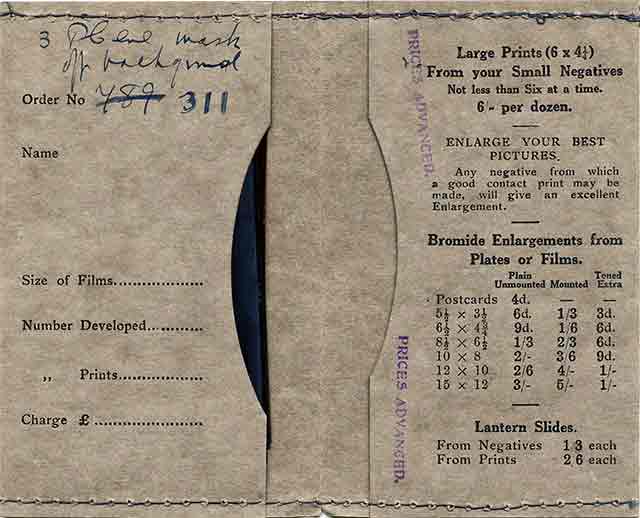 3 Please mask
off background
Order No 789 311
Name
Size of Films
Number Developed
„ Prints
Charge £
PRICES ADVANCED.
PRICES ADVANCED.
Large Prints (6 x 4¼)
From your Small Negatives
Not less than Six at a time.
6/- per dozen.
ENLARGE YOUR BEST
PICTURES.
Any negative from which
a good contact print may be
made, will give an excellent
Enlargement.
Bromide Enlargements from
Plates or Films.
Plain Unmounted Mounted Toned Extra
Postcards 4d. — —
5½ × 3½ 6d. 1/3 3d.
6½ × 4¾ 9d. 1/6 6d.
8½ × 6½ 1/3 2/3 6d.
10 × 8 2/- 3/6 9d.
12 × 10 2/6 4/- 1/-
15 × 12 3/- 5/- 1/-
Lantern Slides.
From Negatives 1 3 each
From Prints 2 6 each